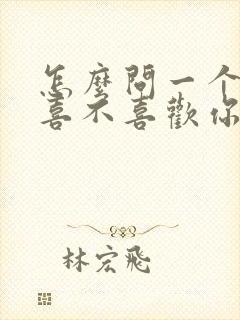 怎麼問一个
喜不喜歡你
林宏飛